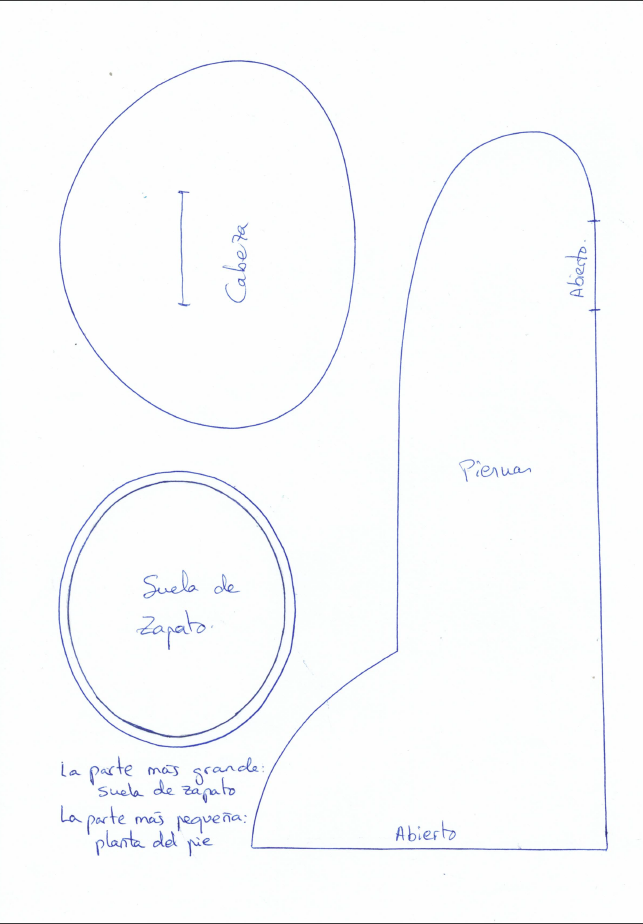 Cabeza
Abierto.
Piernas
Suela de
Zapato.
La parte más grande:
suela de zapato
La parte más pequeña:
planta del pie
Abierto